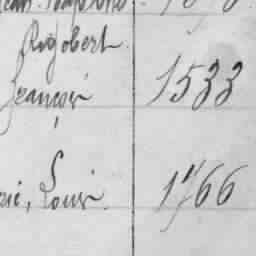 Rigobert.
François 1533
rie, Louis. 1766